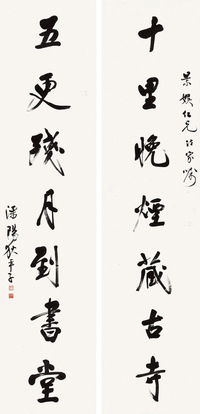 十里晚煙藏古寺
景 仁兄法家嘱
五更殘月到書堂
溧陽狄平子